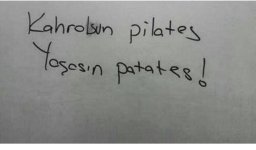 Kahrolsun pilates
Yaşasın patates!